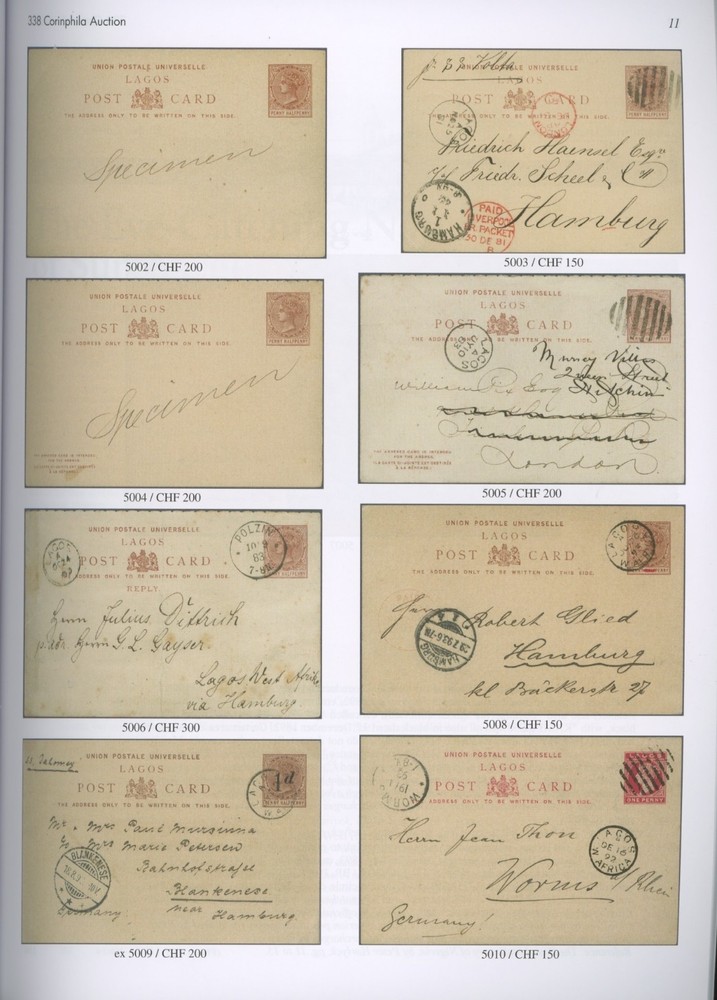 338 Corinphila Auction
11
UNION POSTALE UNIVERSELLE
LAGOS
POST CARD
THE ADDRESS ONLY TO BE WRITTEN ON THIS SIDE.
PENNY HALFPENNY
Specimen
5002 / CHF 200
UNION POSTALE UNIVERSELLE
LAGOS
POST CARD
THE ADDRESS ONLY TO BE WRITTEN ON THIS SIDE.
LAGOS
Friedrich Haensel Esq
Friedr. Scheel &
Hamburg
HAMBURG
PAID
LIVERPOOL
BR. PACKET
30 DE 81
5003 / CHF 150
UNION POSTALE UNIVERSELLE
LAGOS
POST CARD
THE ADDRESS ONLY TO BE WRITTEN ON THIS SIDE.
PENNY HALFPENNY
Specimen
5004 / CHF 200
UNION POSTALE UNIVERSELLE
LAGOS
POST CARD
THE ADDRESS ONLY TO BE WRITTEN ON THIS SIDE.
LAGOS
Hitchin
William
London
5005 / CHF 200
UNION POSTALE UNIVERSELLE
LAGOS
POST CARD
THE ADDRESS ONLY TO BE WRITTEN ON THIS SIDE.
REPLY.
POLZIN
83
Herrn Julius Dittrich
p. adr. Herrn G. L. Gayser
Lagos West Afrika
via Hamburg
5006 / CHF 300
UNION POSTALE UNIVERSELLE
LAGOS
POST CARD
THE ADDRESS ONLY TO BE WRITTEN ON THIS SIDE.
LAGOS
Herrn Robert Glied
Hamburg
kl Bäckerstr 27
HAMBURG
5008 / CHF 150
UNION POSTALE UNIVERSELLE
LAGOS
POST CARD
THE ADDRESS ONLY TO BE WRITTEN ON THIS SIDE.
PENNY HALFPENNY
1d
Mrs Marie Petersen
Bahnhofstraße
Blankenese
near Hamburg
Germany
BLANKENESE
ex 5009 / CHF 200
UNION POSTALE UNIVERSELLE
LAGOS
POST CARD
THE ADDRESS ONLY TO BE WRITTEN ON THIS SIDE.
ONE PENNY
WORMS
Herrn Jean Thon
Worms s/Rhein
Germany!
LAGOS
DE 16
92
W. AFRICA
5010 / CHF 150